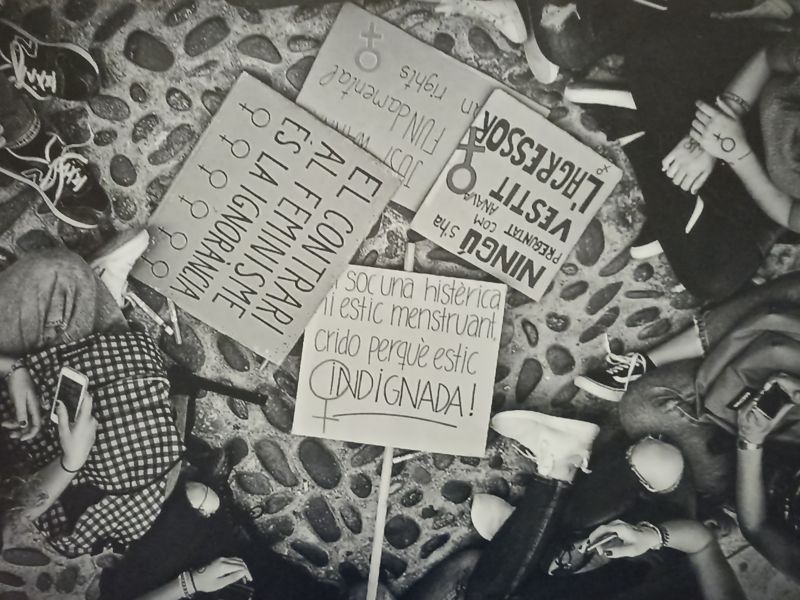 JUST WANT
FUNdamental
an rights
EL CONTRARI
AL FEMINISME
ÉS LA IGNORÀNCIA
NINGÚ s'ha
PREGUNTAT COM
ANAVA
VESTIT
L'AGRESSOR
soc una histèrica
ni estic menstruant,
crido perquè estic
INDIGNADA!